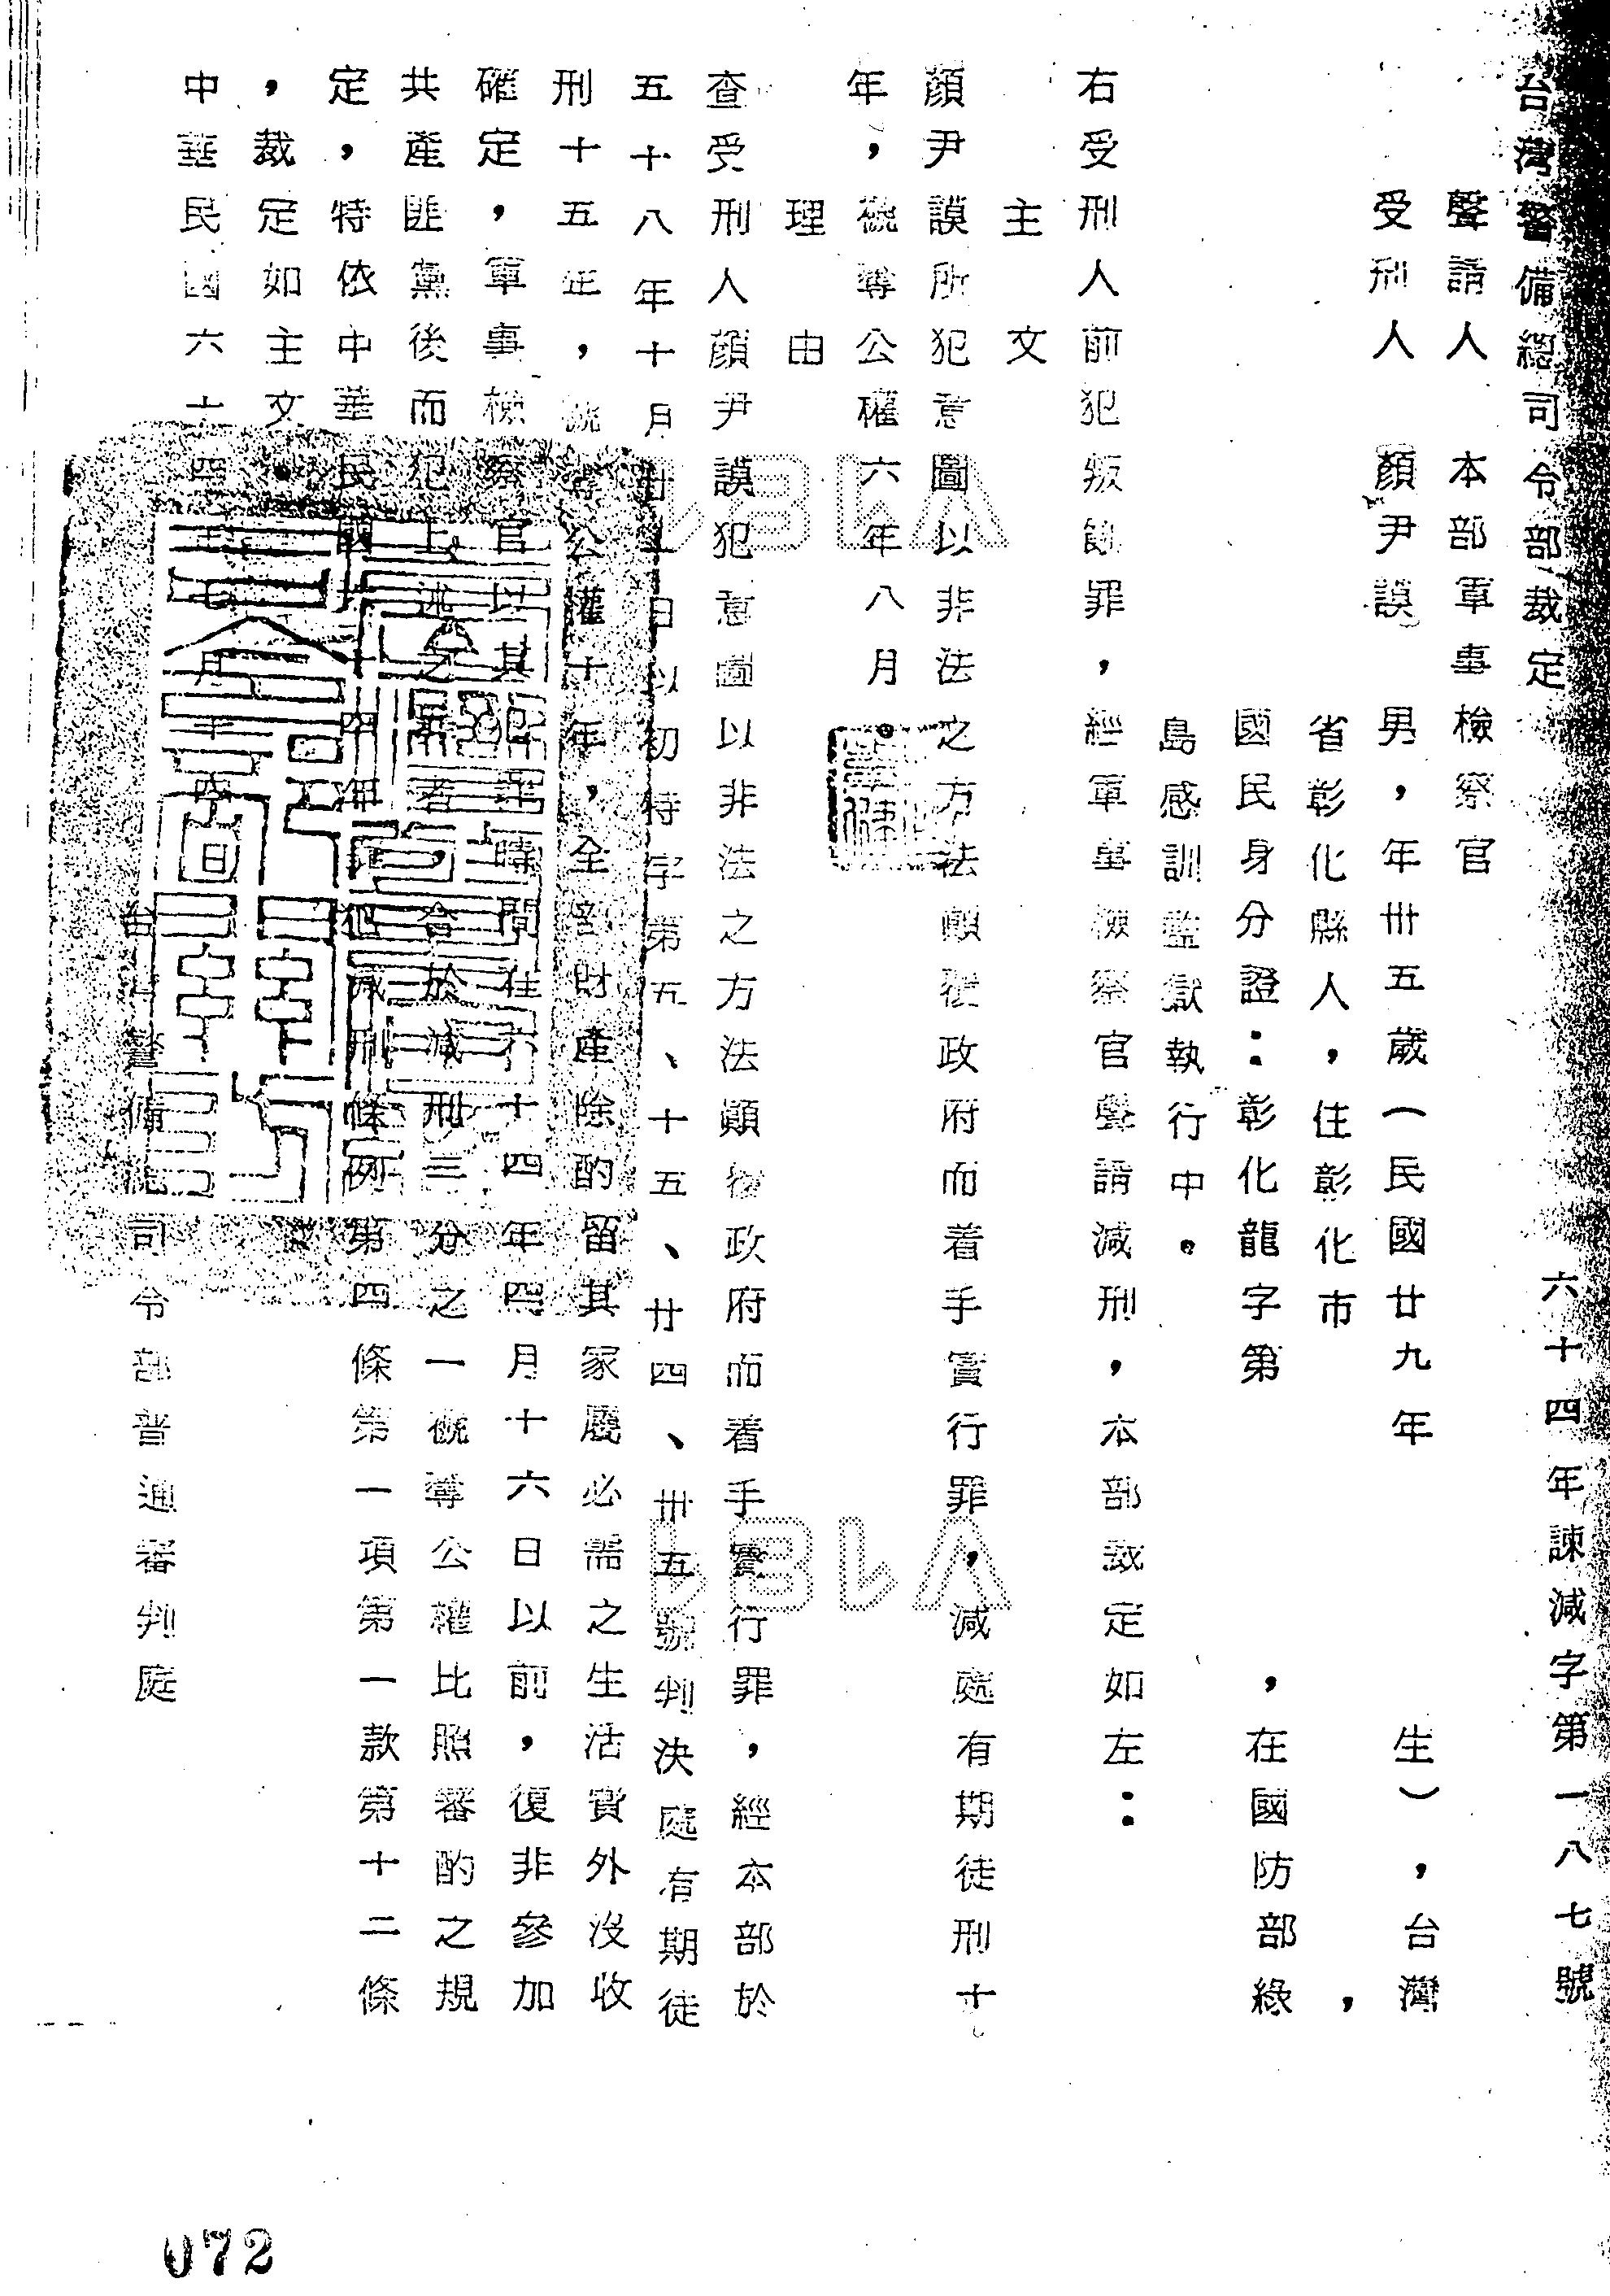 台灣警備總司令部裁定　六十四年諫減字第一八七號
聲請人　本部軍事檢察官
受刑人　顏尹謨　男，年卅五歲（民國廿九年　　生），台灣
省彰化縣人，住彰化市　　　，
國民身分證：彰化龍字第　　　，在國防部綠
島感訓監獄執行中。
右受刑人前犯叛亂罪，經軍事檢察官聲請減刑，本部裁定如左：
主文
顏尹謨所犯意圖以非法之方法顛覆政府而着手實行罪，減處有期徒刑十
年，褫奪公權六年八月。
理由
查受刑人顏尹謨犯意圖以非法之方法顛覆政府而着手實行罪，經本部於
五十八年十月廿 日以初特字第五、十五、廿四、卅五號判決處有期徒
刑十五年，褫奪公權十年，全部財產除酌留其家屬必需之生活費外沒收
確定，軍事檢察官以其犯罪時間在六十四年四月十六日以前，復非參加
共產匪黨後而犯上述之罪者，合於減刑三分之一褫奪公權比照審酌之規
定，特依中華民國六十四年罪犯減刑條例第四條第一項第一款第十二條
，裁定如主文。
中華民國六十四年七月 日
台灣警備總司令部普通審判庭
072